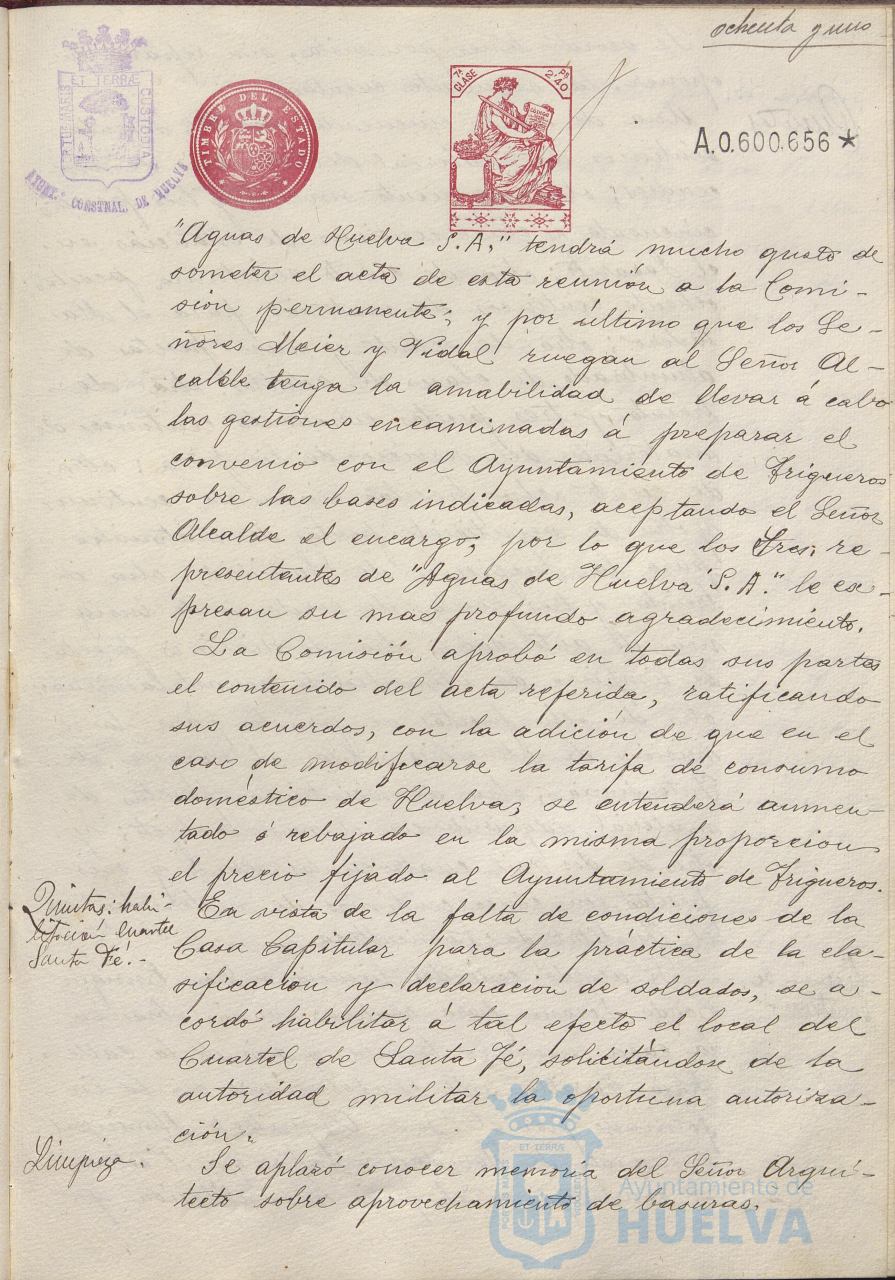 ochenta y uno
ET TERRÆ
PORTUS MARIS
CUSTODIA
AYUNT.º CONSTNAL. DE HUELVA
TIMBRE DEL ESTADO
7ª CLASE
Ps 2'40
A.0.600.656 *
"Aguas de Huelva S.A," tendrá mucho gusto de
someter el acta de esta reunión a la Comi-
sión permanente; y por último que los Se-
ñores Meier y Vidal ruegan al Señor Al-
calde tenga la amabilidad de llevar á cabo
las gestiones encaminadas á preparar el
convenio con el Ayuntamiento de Trigueros
sobre las bases indicadas, aceptando el Señor
Alcalde el encargo, por lo que los Sres. re-
presentantes de "Aguas de Huelva S.A." le ex-
presan su mas profundo agradecimiento.
La Comisión aprobó en todas sus partes
el contenido del acta referida, ratificando
sus acuerdos, con la adición de que en el
caso de modificarse la tarifa de consumo
doméstico de Huelva, se entenderá aumen-
tado ó rebajado en la misma proporcion
el precio fijado al Ayuntamiento de Trigueros.
Quintas: habi-
litación Cuartel
Santa Fé.-
En vista de la falta de condiciones de la
Casa Capitular para la práctica de la cla-
sificacion y declaracion de soldados, se a-
cordó habilitar á tal efecto el local del
Cuartel de Santa Fé, solicitándose de la
autoridad militar la oportuna autoriza-
ción.
Limpieza.
Se aplazó conocer memoria del Señor Arqui-
tecto sobre aprovechamiento de basuras.
ET TERRÆ
Ayuntamiento de
HUELVA